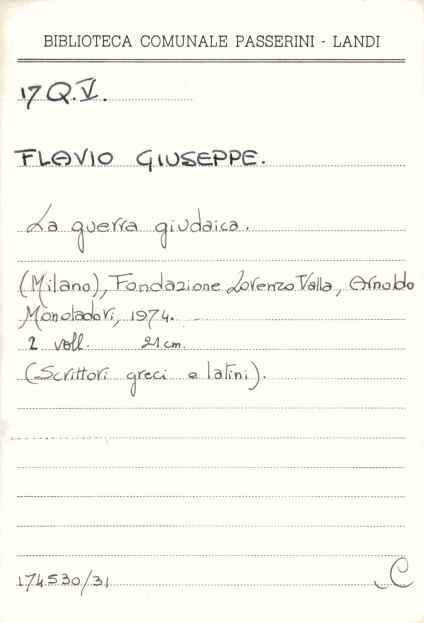 BIBLIOTECA COMUNALE PASSERINI - LANDI
17 Q.V.
FLAVIO GIUSEPPE.
La guerra giudaica.
(Milano), Fondazione Lorenzo Valla, Arnoldo
Mondadori, 1974.
2 voll. 21 cm.
(Scrittori greci e latini).
174530/31
C